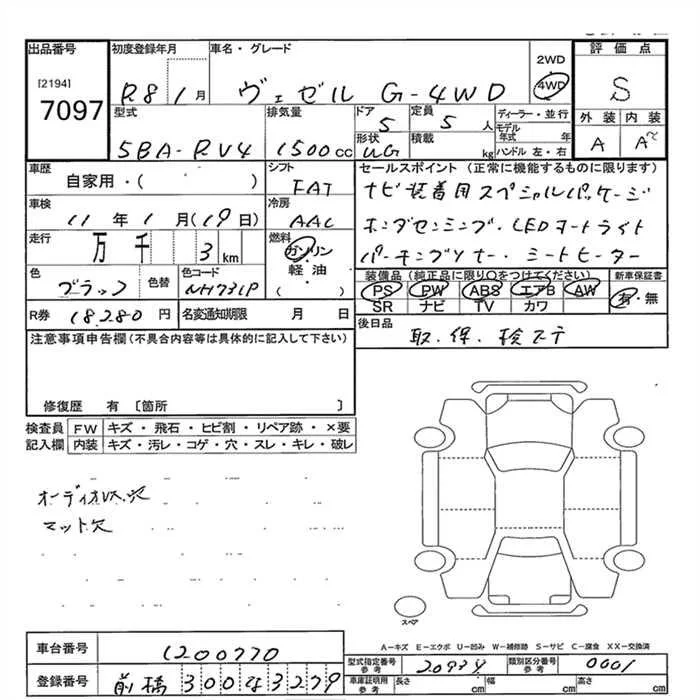 出品番号 初度登録年月 車名・グレード 評価点
[2194] 2WD
7097 R8 1月 ヴェゼル G-4WD 4WD S
型式 排気量 ドア 5 定員 5人 ディーラー・並行 外装 内装
モデル年式 年
5BA-RV4 1500cc 形状 UG 積載 kg ハンドル 左・右 A A~
車歴 シフト セールスポイント (正常に機能するものに限ります)
自家用・( ) FAT ナビ装着用スペシャルパッケージ
車検 冷房
11年1月(19日) AAC ホンダセンシング・LEDオートライト
走行 燃料
万 千 3km ガソリン パーキングソナー・シートヒーター
軽油
色 色替 色コード ( ) 装備品(純正品に限り○をつけてください) 新車保証書
ブラック NH731P PS PW ABS エアB AW 有・無
SR ナビ TV カワ
R券 18280円 名変通知期限 月 日 後日品
注意事項申告欄(不具合内容等は具体的に記入して下さい) 取.保.検ステ
修復歴 有 〔箇所 〕
検査員 FW キズ・飛石・ヒビ割・リペア跡・×要
記入欄 内装 キズ・汚レ・コゲ・穴・スレ・キレ・破レ
マット欠
スペア
A-キズ E-エクボ U-凹み W-補修跡 S-サビ C-腐食 XX-交換済
車台番号 1200770
型式指定番号 参考 20934 類別区分番号 参考 0001
登録番号 前橋 300な3279 車庫証明用 参考 長さ cm 幅 cm 高さ cm